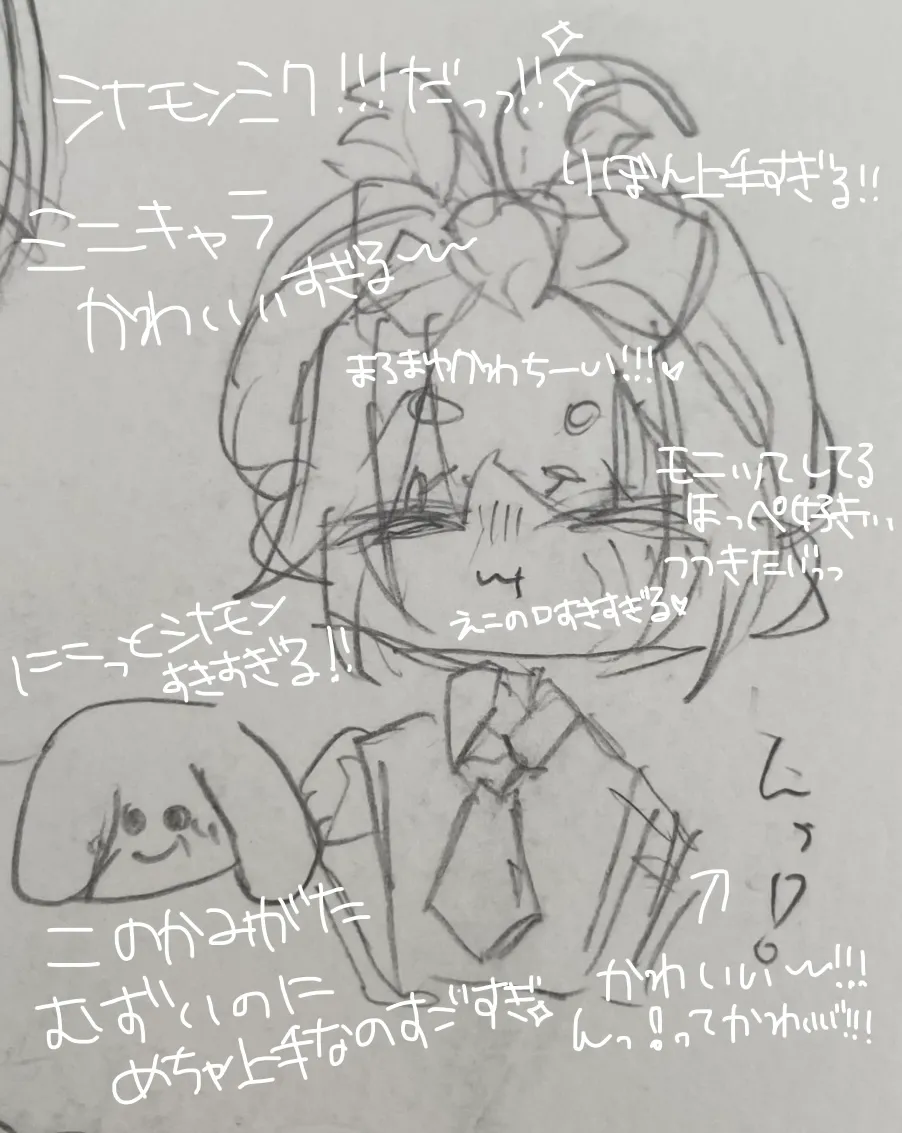 シナモンミク!!!だっっ!!
りぼん上手すぎる!!
ミニキャラ
かわいいすぎる〜〜
まろまゆかわちーい!!!♡
モニッてしてる
ほっぺ好きぃぃ
つつきたいっっ
えこの口すきすぎる♡
にこっとシナモン
すきすぎる!!
んっ!
このかみがた
むずいのに
めちゃ上手なのすごすぎ
かわいい〜!!!
んっ!ってかわいい!!!